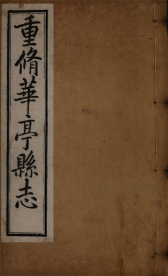 重脩華亭縣志